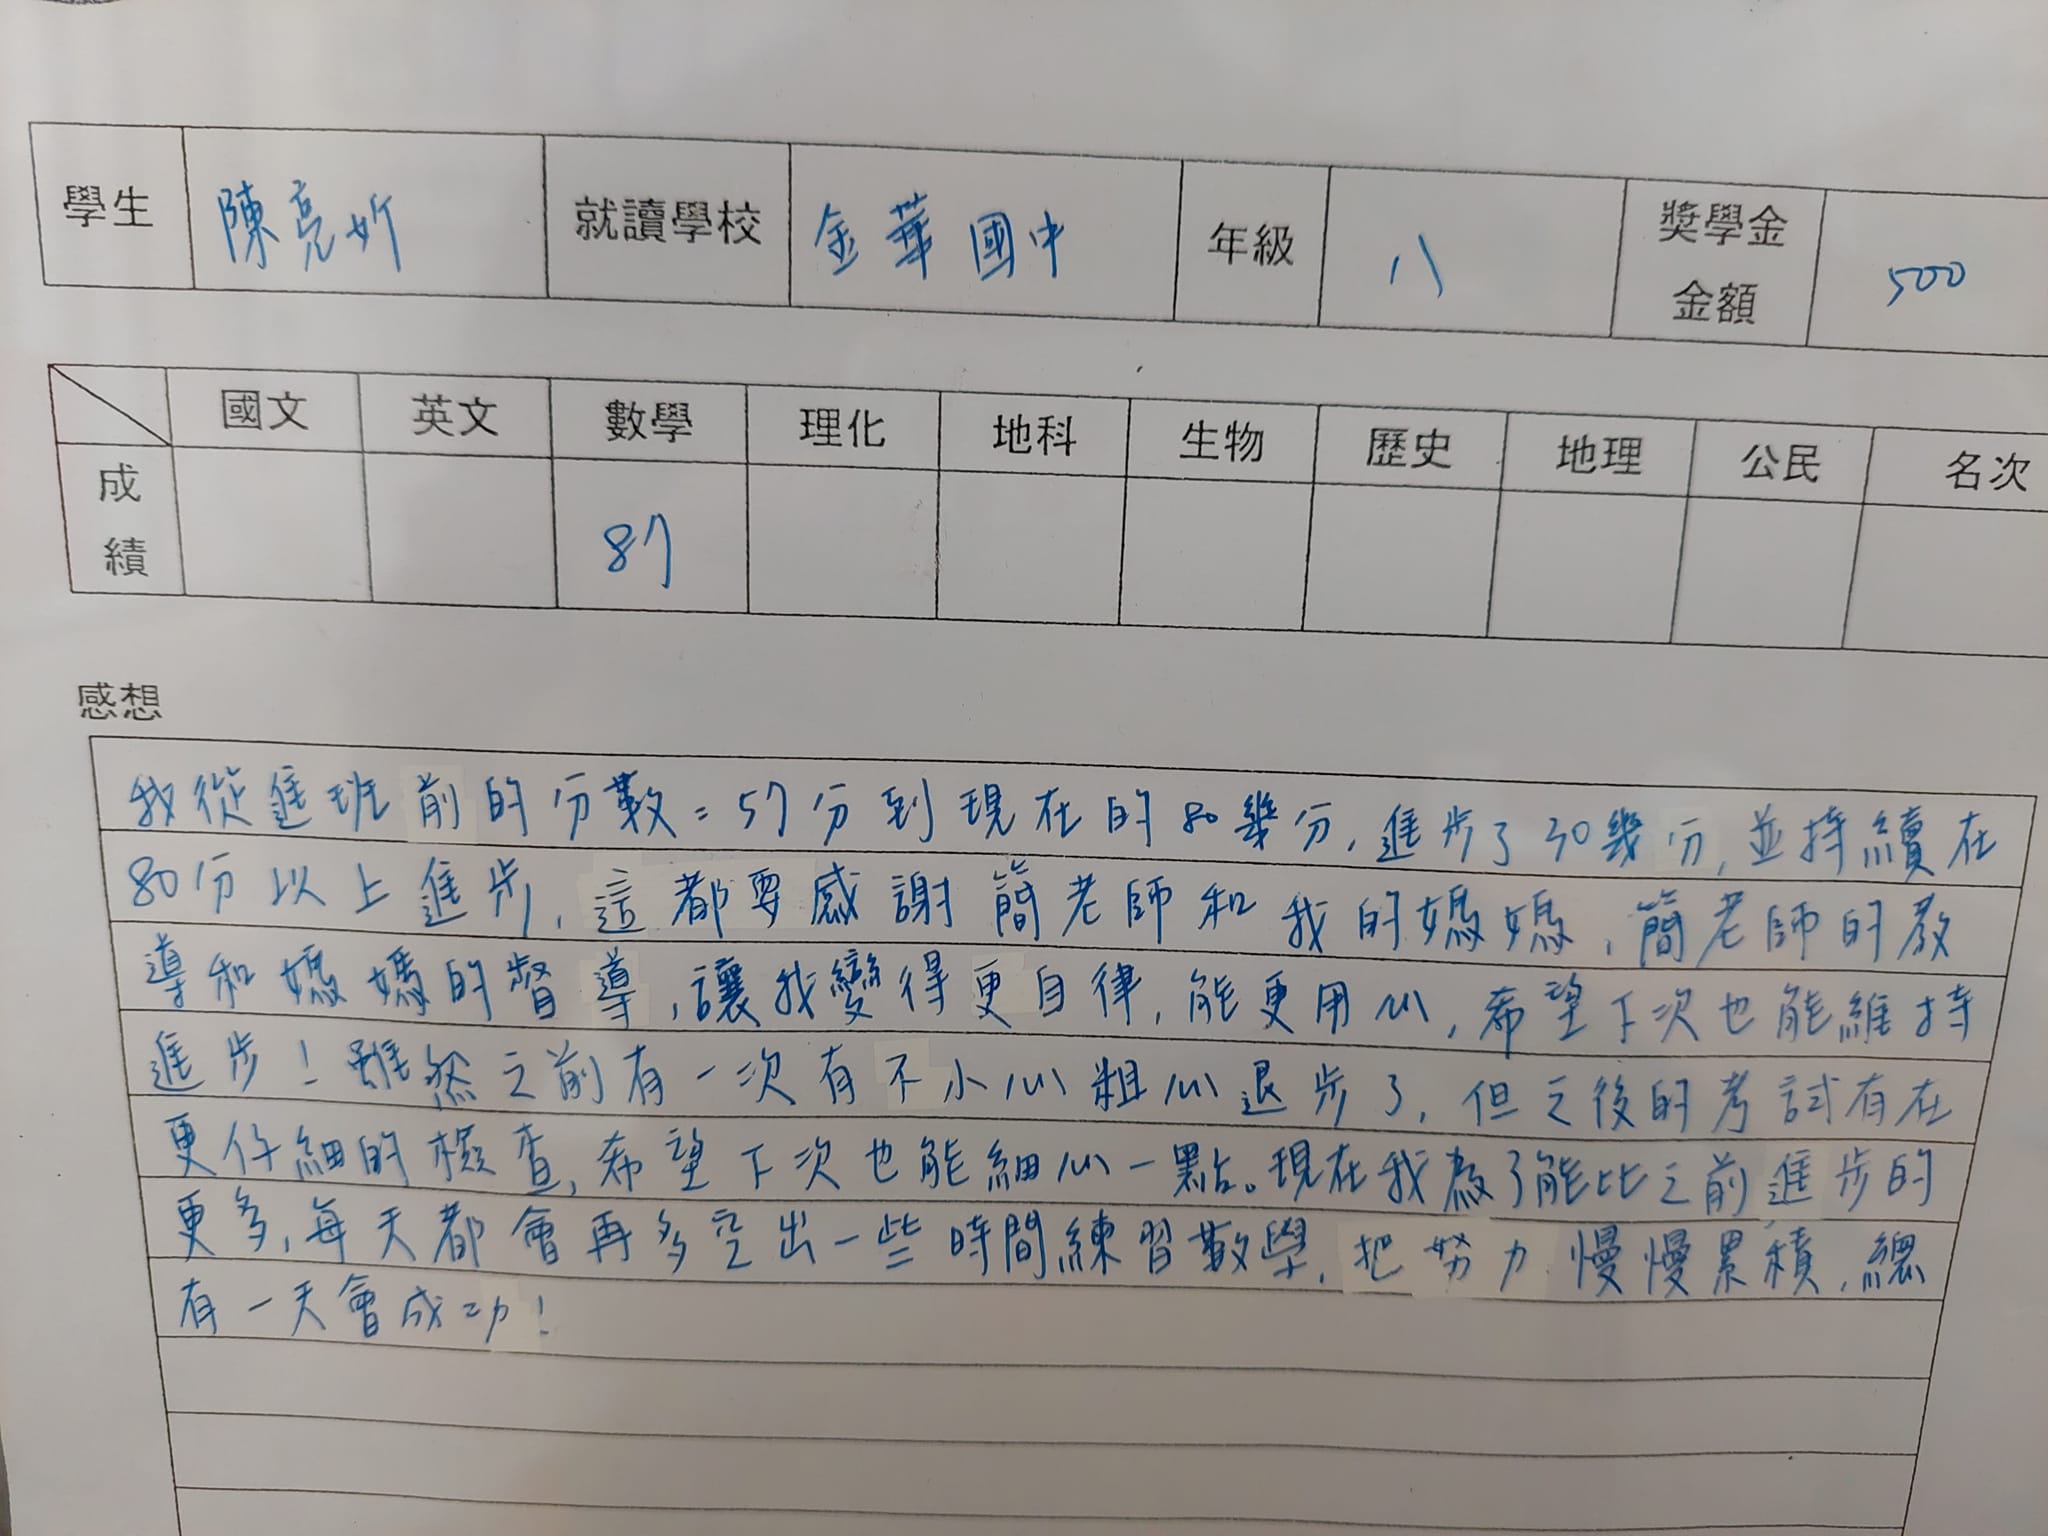 學生 陳亮妡 就讀學校 金華國中 年級 八 獎學金金額 500
國文 英文 數學 理化 地科 生物 歷史 地理 公民 名次
成績 87
感想
我從進班前的分數=57分到現在的80幾分,進步了30幾分,並持續在
80分以上進步,這都要感謝簡老師和我的媽媽,簡老師的教
導和媽媽的督導,讓我變得更自律,能更用心,希望下次也能維持
進步!雖然之前有一次有不小心粗心退步了,但之後的考試有在
更仔細的檢查,希望下次也能細心一點。現在我為了能比之前進步的
更多,每天都會再多空出一些時間練習數學,把努力慢慢累積,總
有一天會成功!